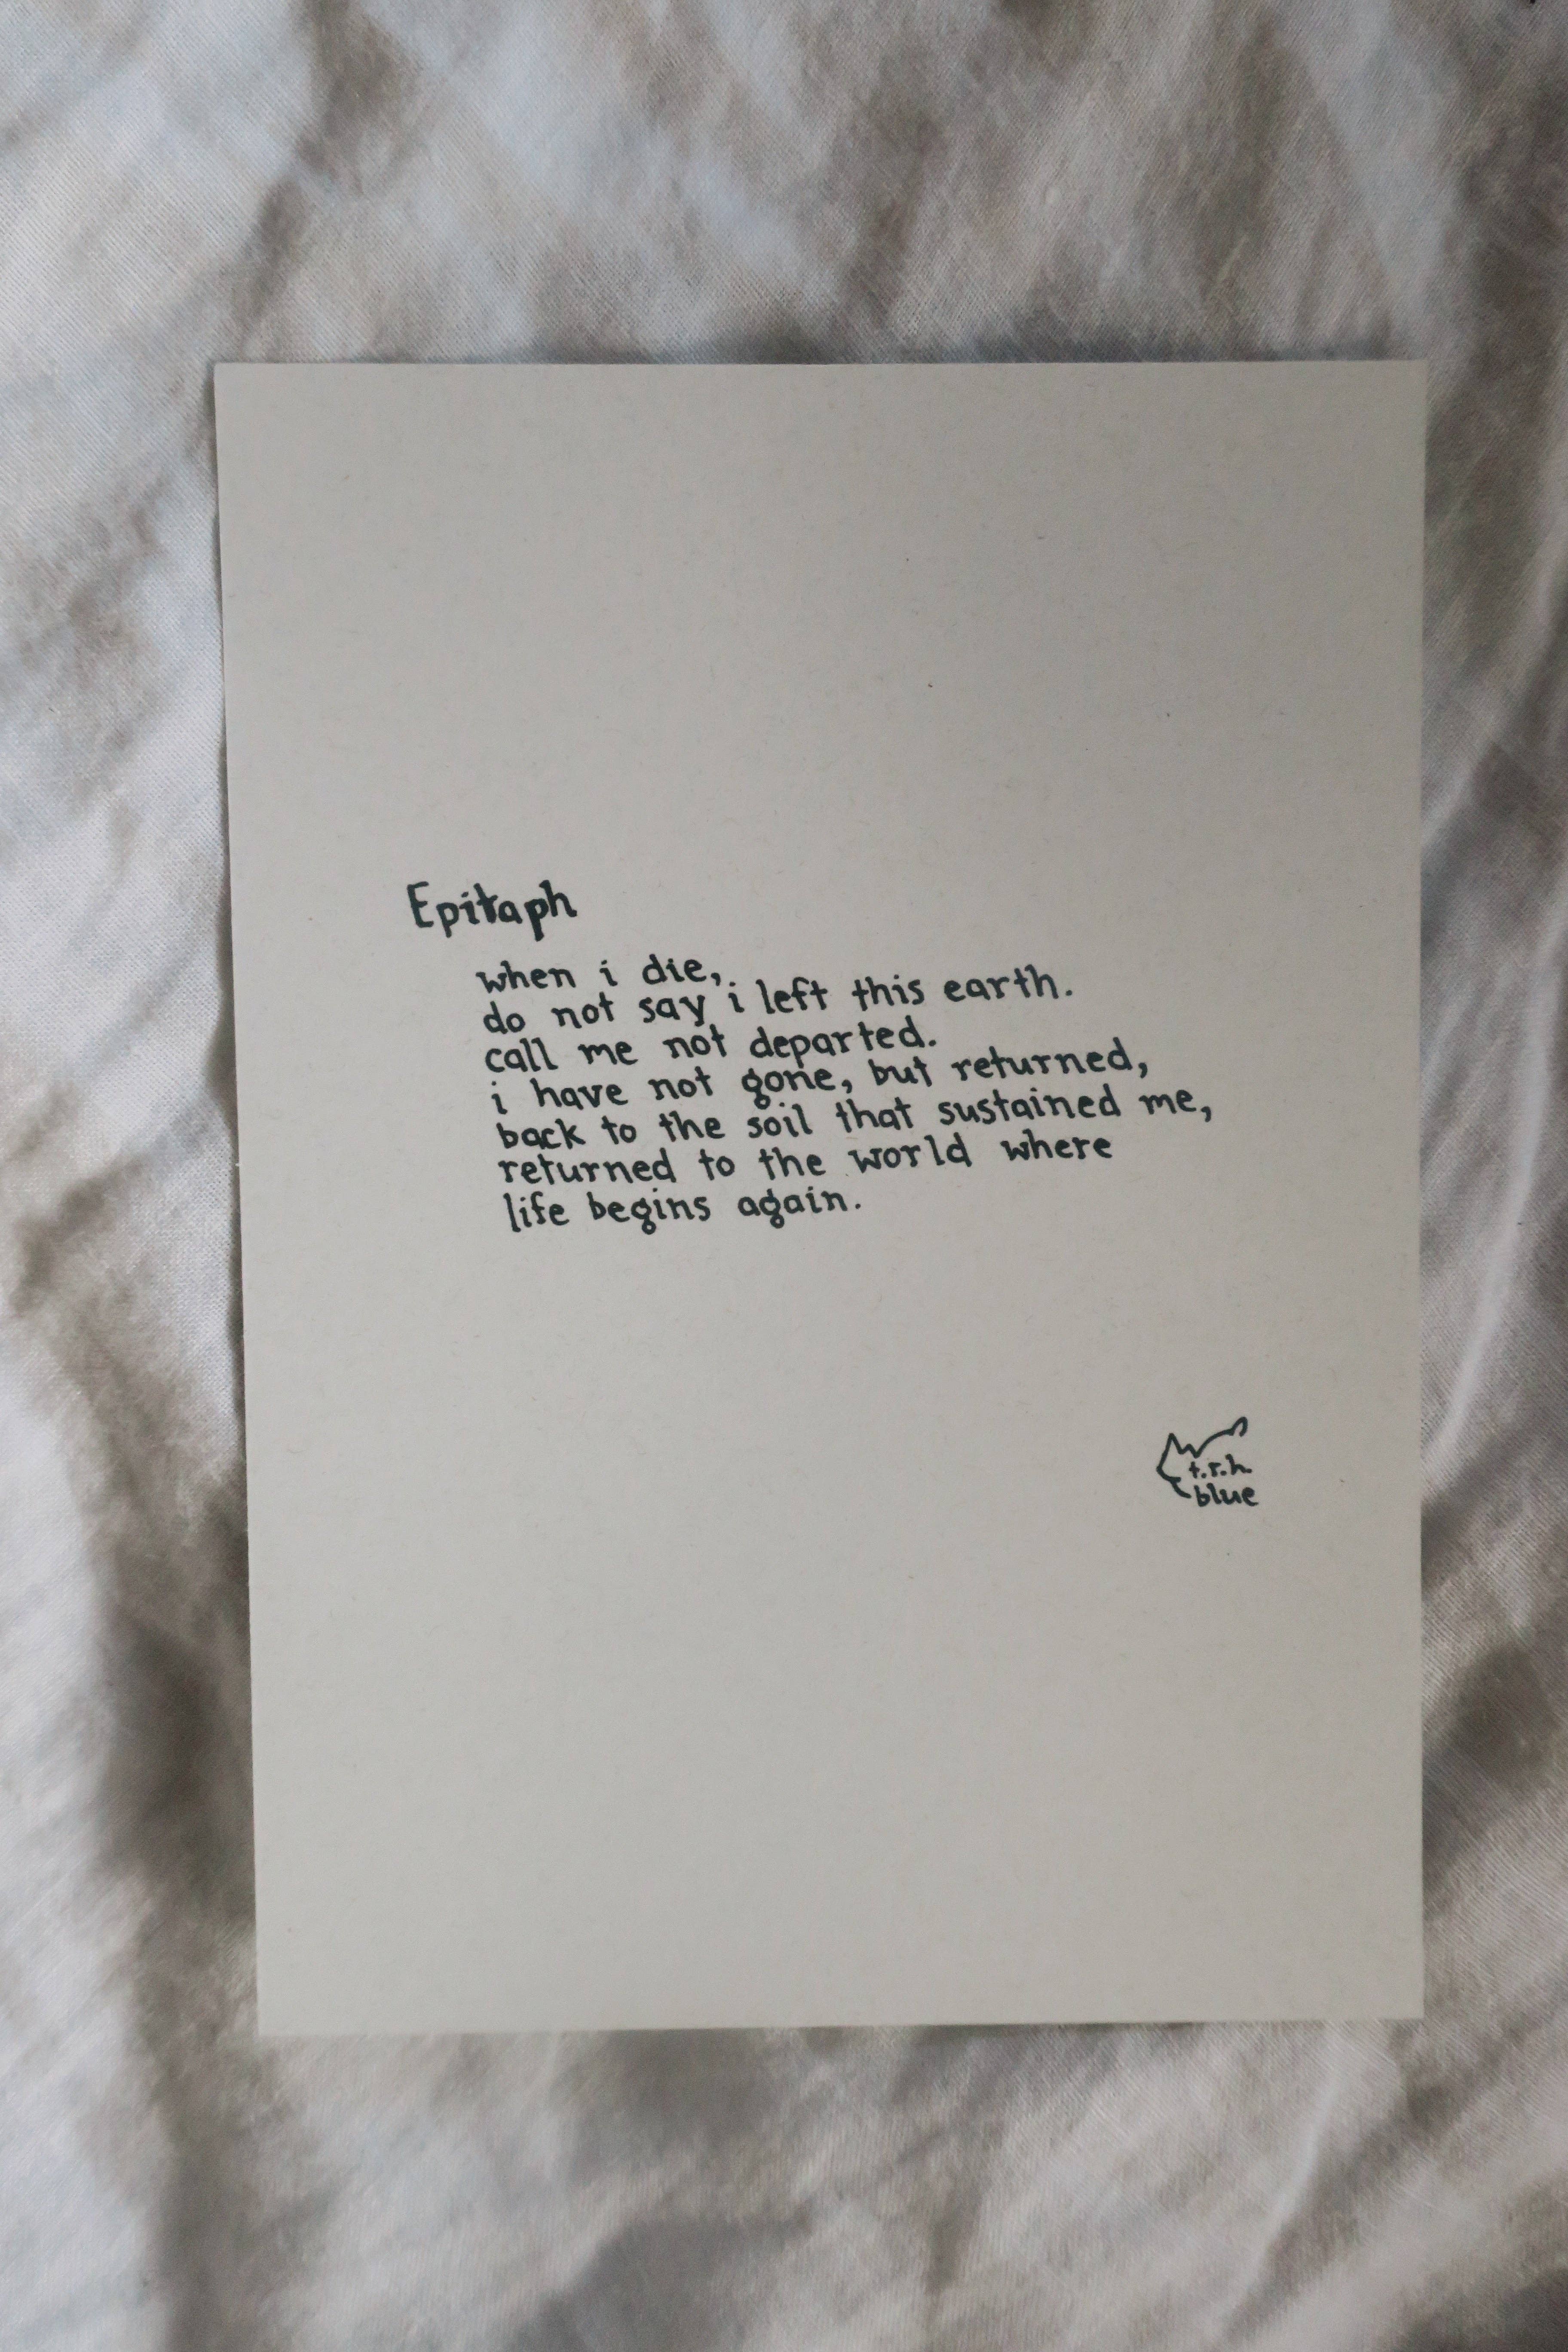 Epitaph
when i die,
do not say i left this earth.
call me not departed.
i have not gone, but returned,
back to the soil that sustained me,
returned to the world where
life begins again.
t.r.h.
blue